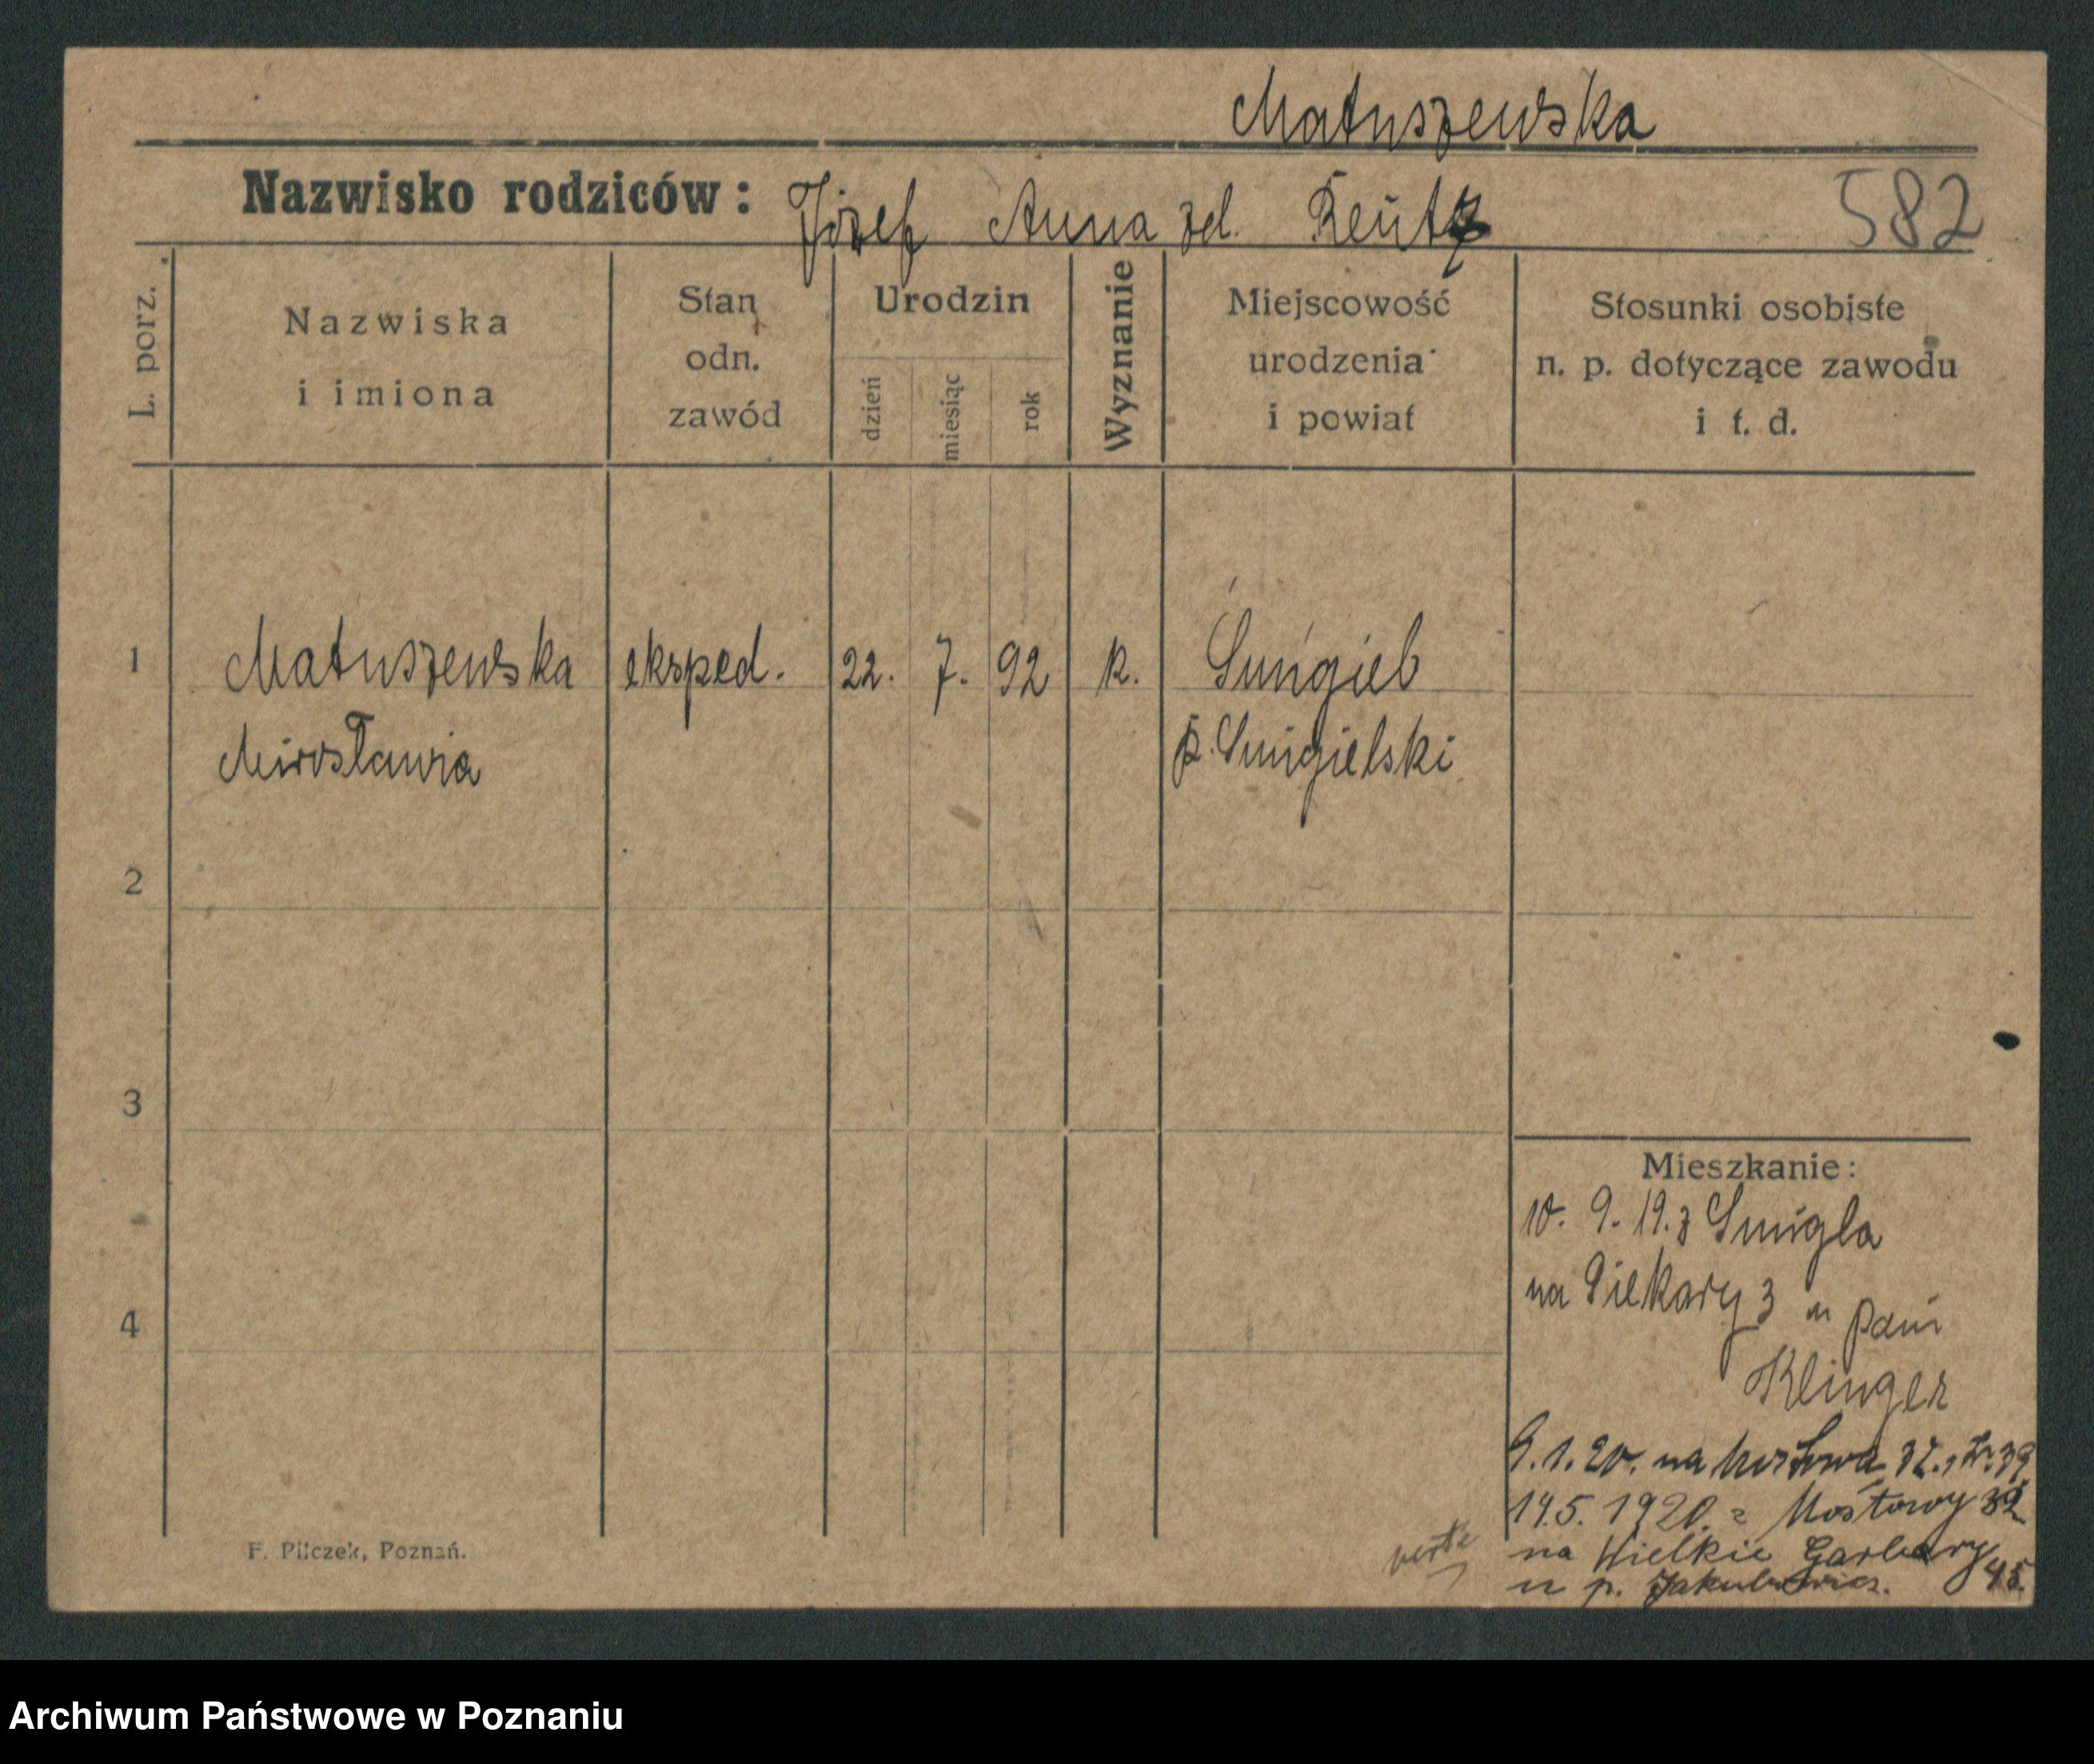 Matuszewska
Nazwisko rodziców: Józef Anna zd. Reutz
582
L. porz.
Nazwiska
i imiona
Stan
odn.
zawód
Urodzin
dzień
miesiąc
rok
Wyznanie
Miejscowość
urodzenia
i powiat
Stosunki osobiste
n. p. dotyczące zawodu
i t. d.
1 Matuszewska eksped. 22. 7. 92 k. Śmigiel
Mirosława p. Śmigielski
2
3
4
Mieszkanie:
10. 9. 19. z Smigla
na Piekary 3 u pani
Klinger
9. 1. 20. na 32.
14.5. 1920. z Mostowy 32
na Wielkie Garbary 45.
u p. Jakubowicz.
verte
F. Pilczek, Poznań.
Archiwum Państwowe w Poznaniu